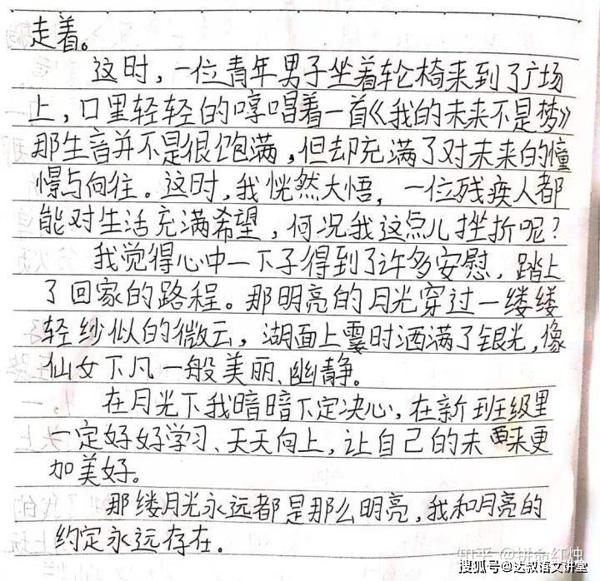 走着。
这时，一位青年男子坐着轮椅来到了广场
上，口里轻轻的哼唱着一首《我的未来不是梦》
那生音并不是很饱满，但却充满了对未来的憧
憬与向往。这时，我恍然大悟，一位残疾人都
能对生活充满希望，何况我这点儿挫折呢？
我觉得心中一下子得到了许多安慰，踏上
了回家的路程。那明亮的月光穿过一缕缕
轻纱似的微云，湖面上霎时洒满了银光，像
仙女下凡一般美丽、幽静。
在月光下我暗暗下定决心，在新班级里
一定好好学习、天天向上，让自己的未来更
加美好。
那缕月光永远都是那么明亮，我和月亮的
约定永远存在。
知乎 @拼命红烛
搜狐号@达叔语文讲堂